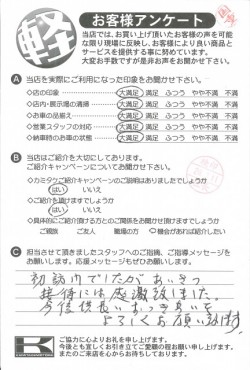 軽
お客様アンケート
当店では、お買い上げ頂いたお客様の声を可能
な限り現場に反映し、お客様により良い商品と
サービスを提供する事に努めています。
大変お手数ですが是非お声をお聞かせ下さい。
A 当店を実際にご利用になった印象をお聞かせ下さい。
◇店の印象 大満足 満足 ふつう やや不満 不満
◇店内・展示場の清掃 大満足 満足 ふつう やや不満 不満
◇お車の品揃え 大満足 満足 ふつう やや不満 不満
◇営業スタッフの対応 大満足 満足 ふつう やや不満 不満
◇納車時のお車の状態 大満足 満足 ふつう やや不満 不満
B 当店はご紹介を大切にしております。
ご紹介キャンペーンについてお聞かせ下さい。
◇カミタケご紹介キャンペーンのご説明はありましたでしょうか
はい いいえ
◇ご紹介を頂けますでしょうか
はい いいえ
◇具体的にご紹介頂ける方とのご関係をお聞かせ頂けますでしょうか
ご親戚 ご友人 職場の方 機会があれば紹介したい
C 担当させて頂きましたスタッフへのご指摘、ご指導メッセージを
お願いします。応援メッセージもぜひお願いします。
初訪問でしたがあいさつ
接待には感激致しました。
今後供長いおつきあいを
よろしくお願い致します
K
ご協力に心よりお礼を申し上げます。
今後とも宜しくお引き立てご愛顧の程お願い申し上げます。
またのご来店を心からお待ちしております。